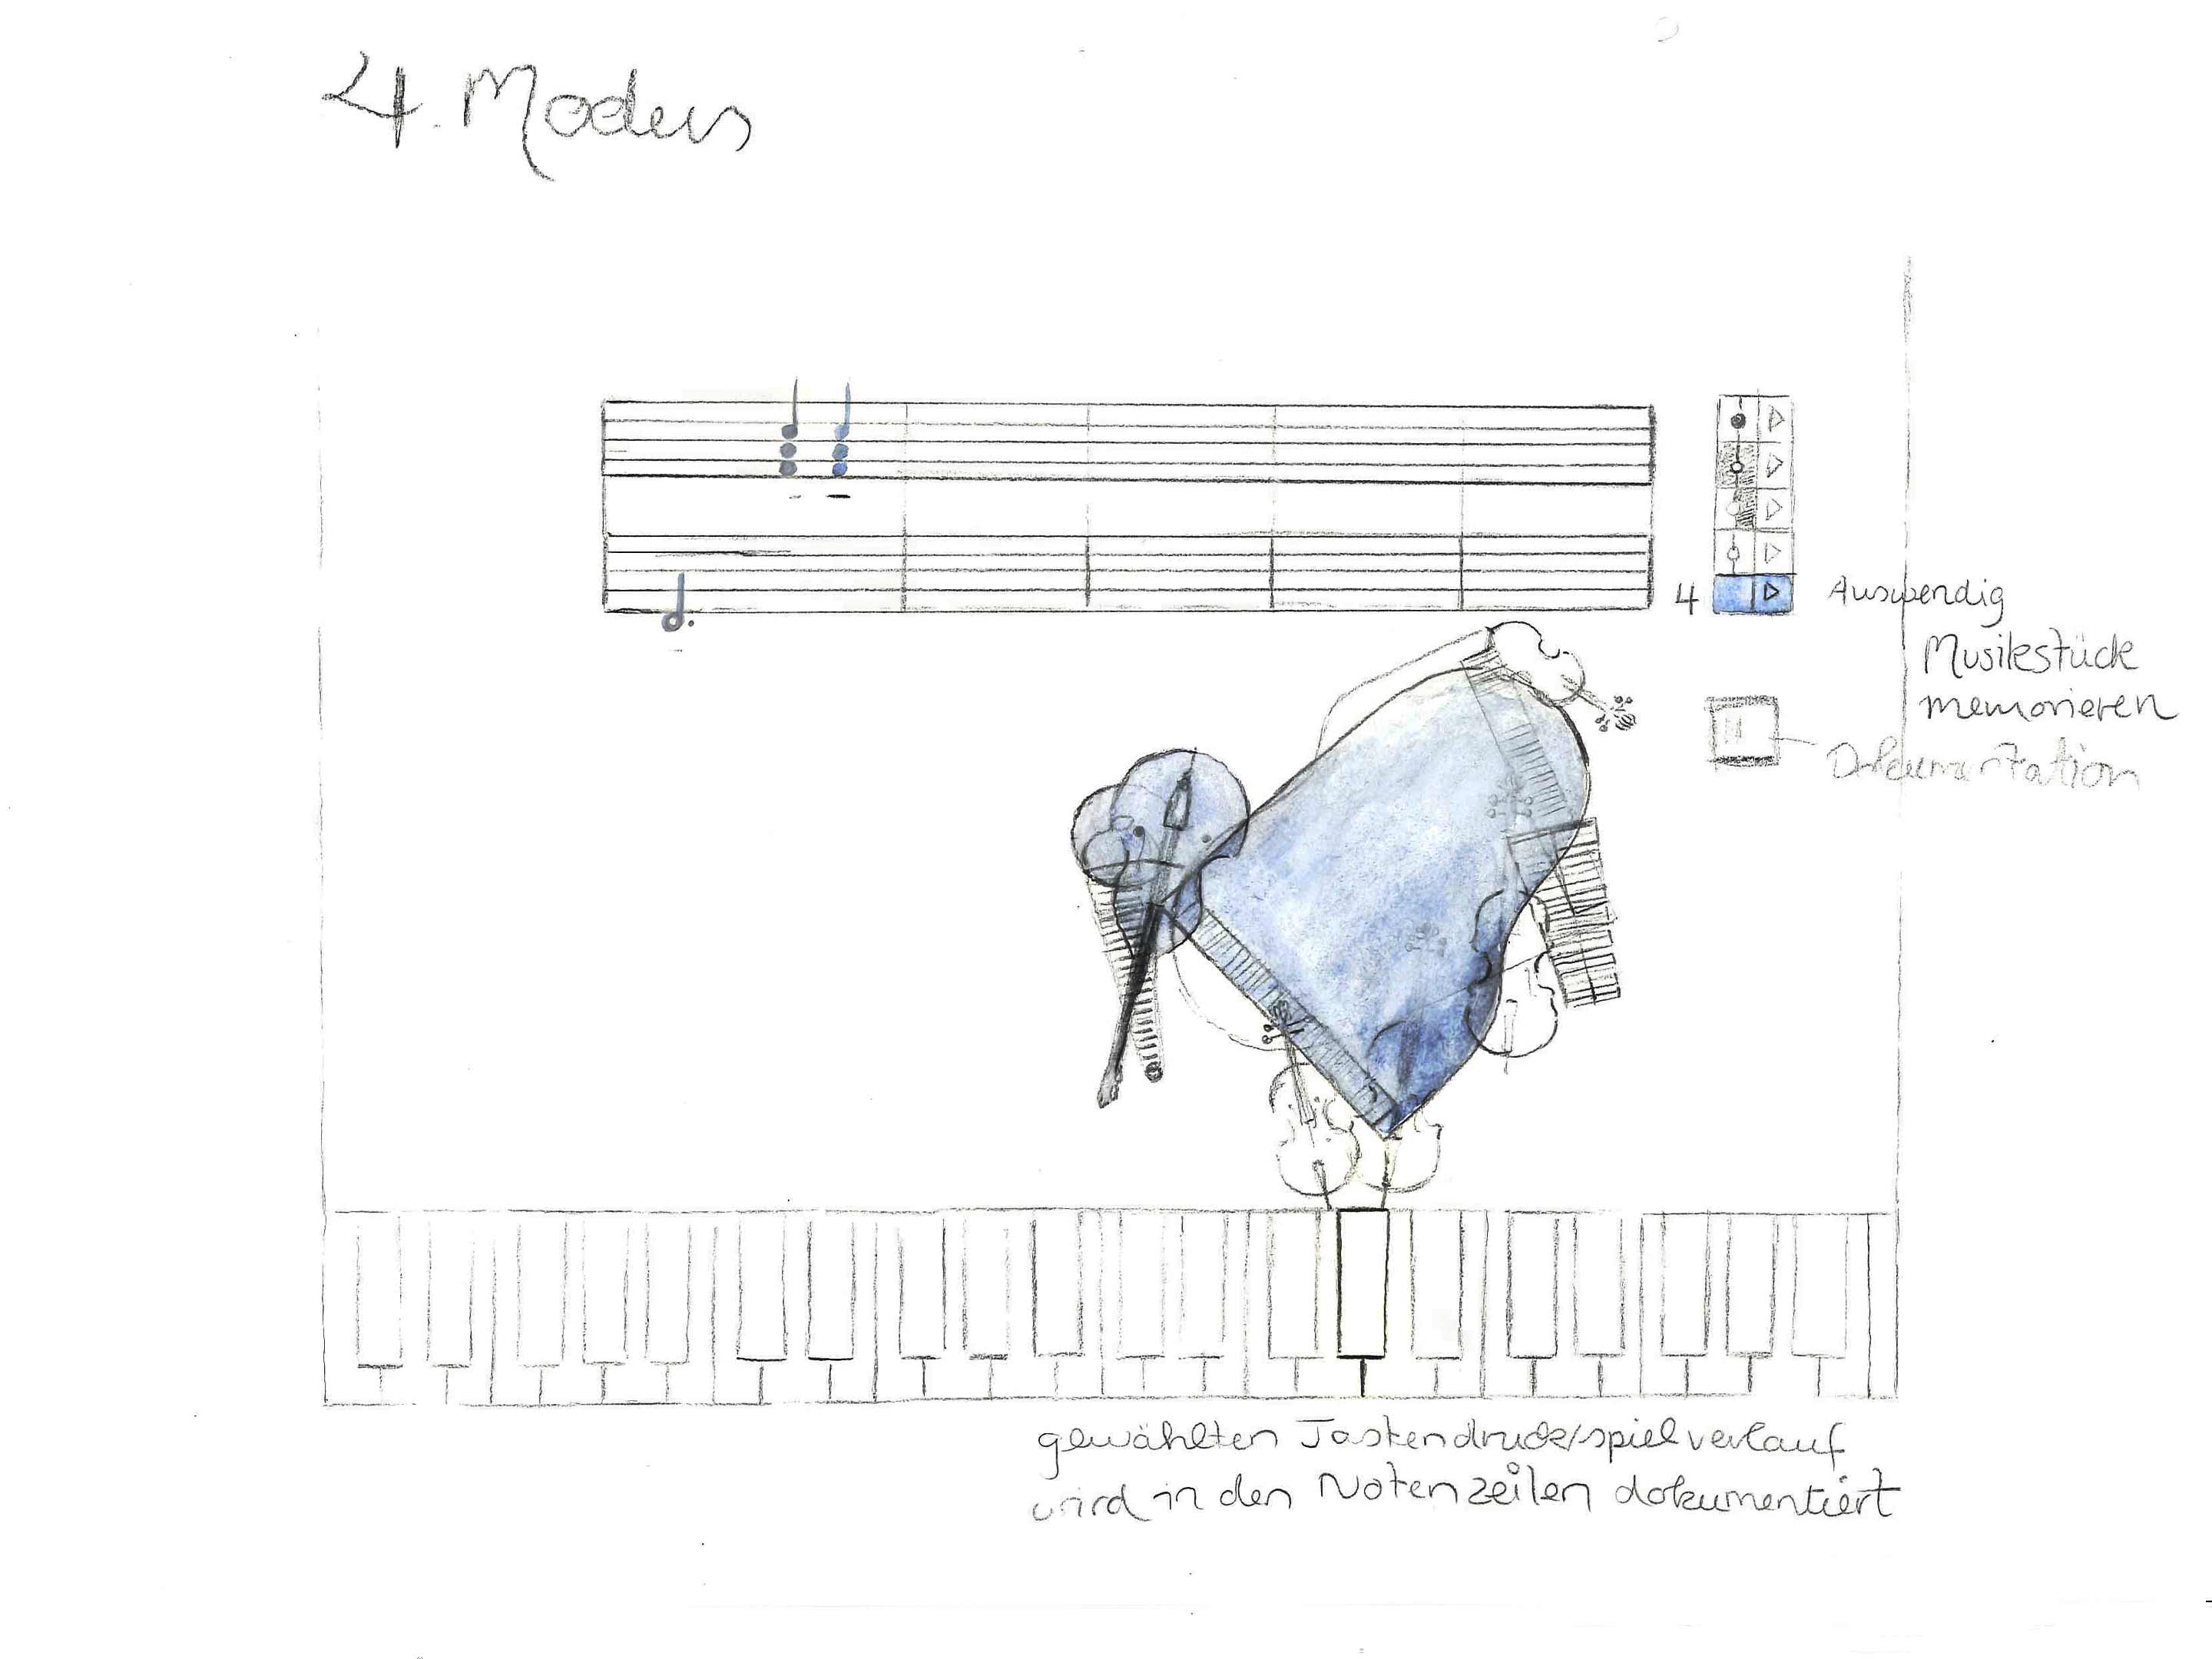 4. Modus
4 Auswendig
Musikstück
memorieren
Dokumentation
gewählten Tastendruck/spielverlauf
wird in den Notenzeilen dokumentiert